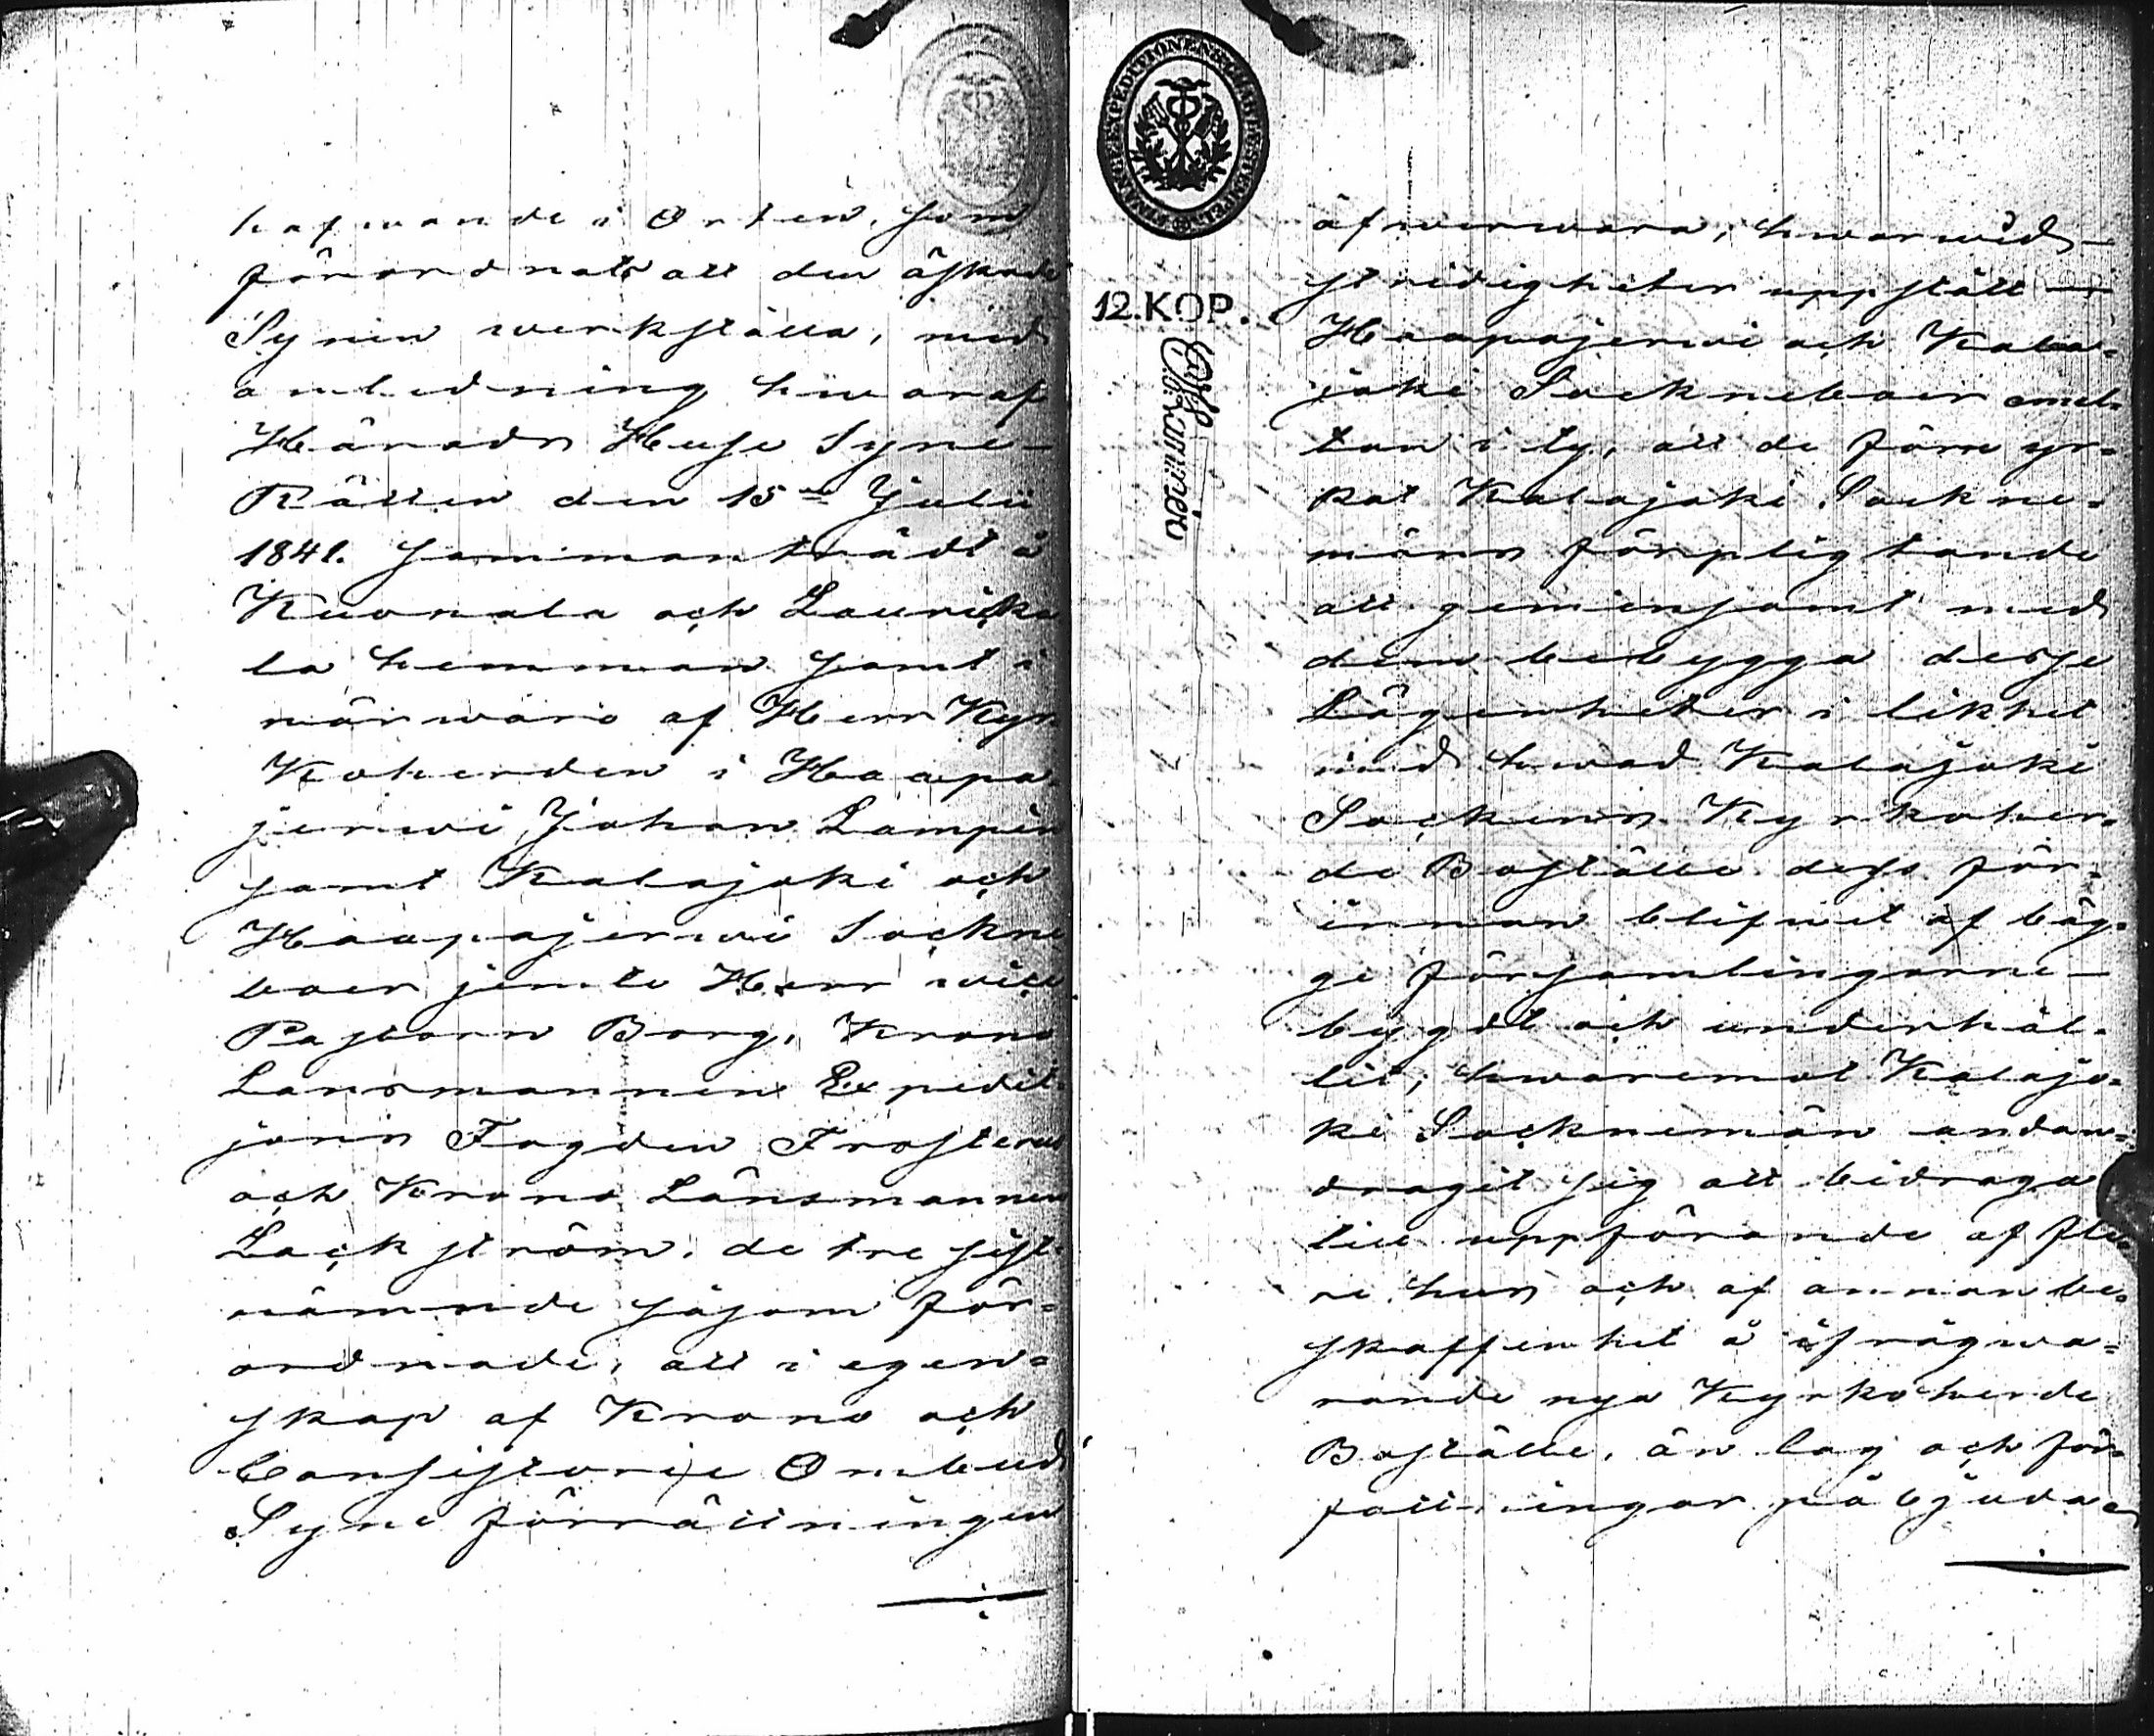 hafwande i Orten, som
förordnats att den äskade
Synen werkställa, med
anledning hwaraf
Härads Husesyns-
Rätten den 15de Julii
1841. sammanträdt å
Kuonala och Lauricka
la hemman samt i
närwaro af Herr Kyr
Koherden i Haapa-
jerwi Johan Lampen
samt Kalajoki och
Haapajerwi Sockne
boer jemte Herr vice
Pastorn Borg, Krono
Lansmannen Expedit-
jons Fogden Frosterus
och Krono Länsmannen
Lackström, de tre sist-
nämnde såsom för-
ordnade, att i egen-
skap af Krono och
Consistorii Ombud
Syne förrättningen
12.KOP.
öfwerwara, hwarwid-
stridigheter uppstått
Haapajerwi och Kala-
joki Sockneboer emel-
lan i ty, att de förre yr-
kat Kalajoki Sockne-
mäns förpligtande
att gemensamt med
dem bebygga desse
Lägenheter i likhet
med hwad Kalajoki
Sockens Kyrkoher-
de Boställe dess för-
innan blifwit af båg-
ge församlingarne-
bygdt och underhål-
lit; hwaremot Kalajo-
ki Socknemän undan-
dragit sig att bidraga
till uppförande af fle-
re hus och af annan be-
skaffenhet å ifrågwa-
rande nya Kyrkoherde
Boställe, än lag och för-
fattningar påbjuda